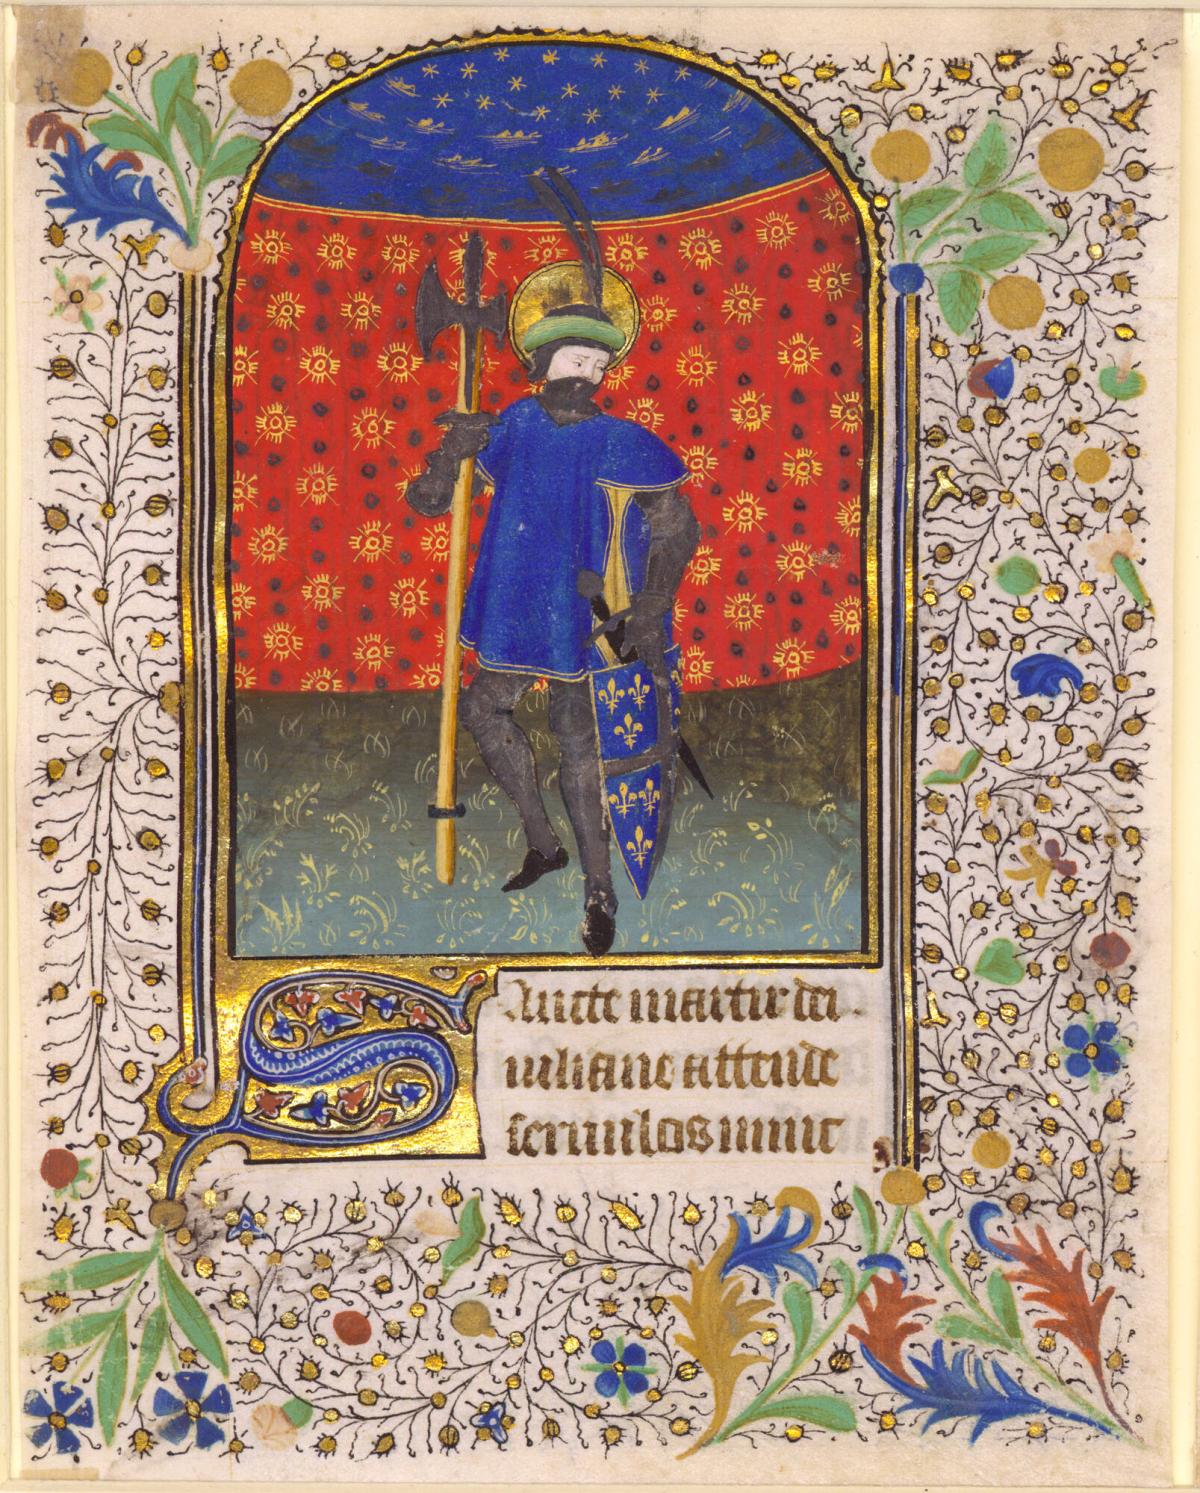 Sancte martir dei
iuliane attende
seruulos nunc